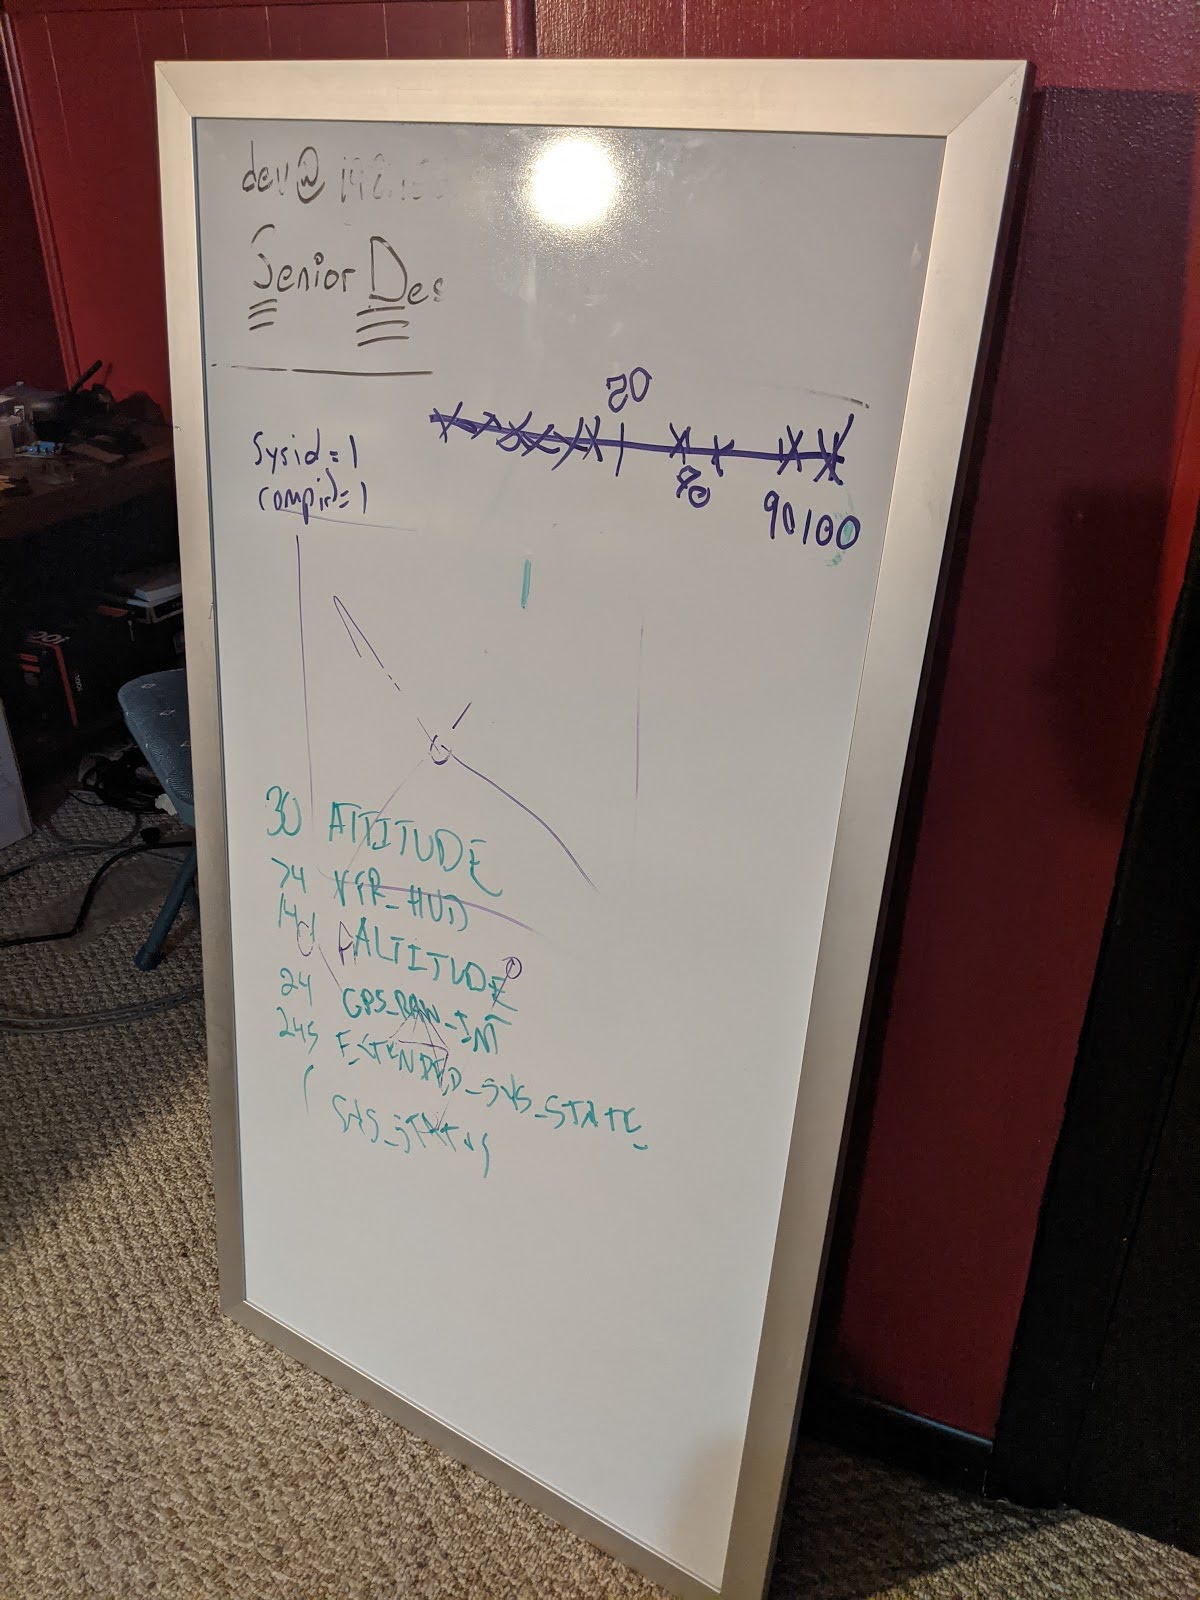 dev@ 192.168
Senior Des
50
Sysid = 1
compid = 1
90
90 100
30 ATTITUDE
74 VFR_HUD
141 ALTITUDE
24 GPS_RAW_INT
245 EXTENDED_SYS_STATE
1 SYS_STATUS